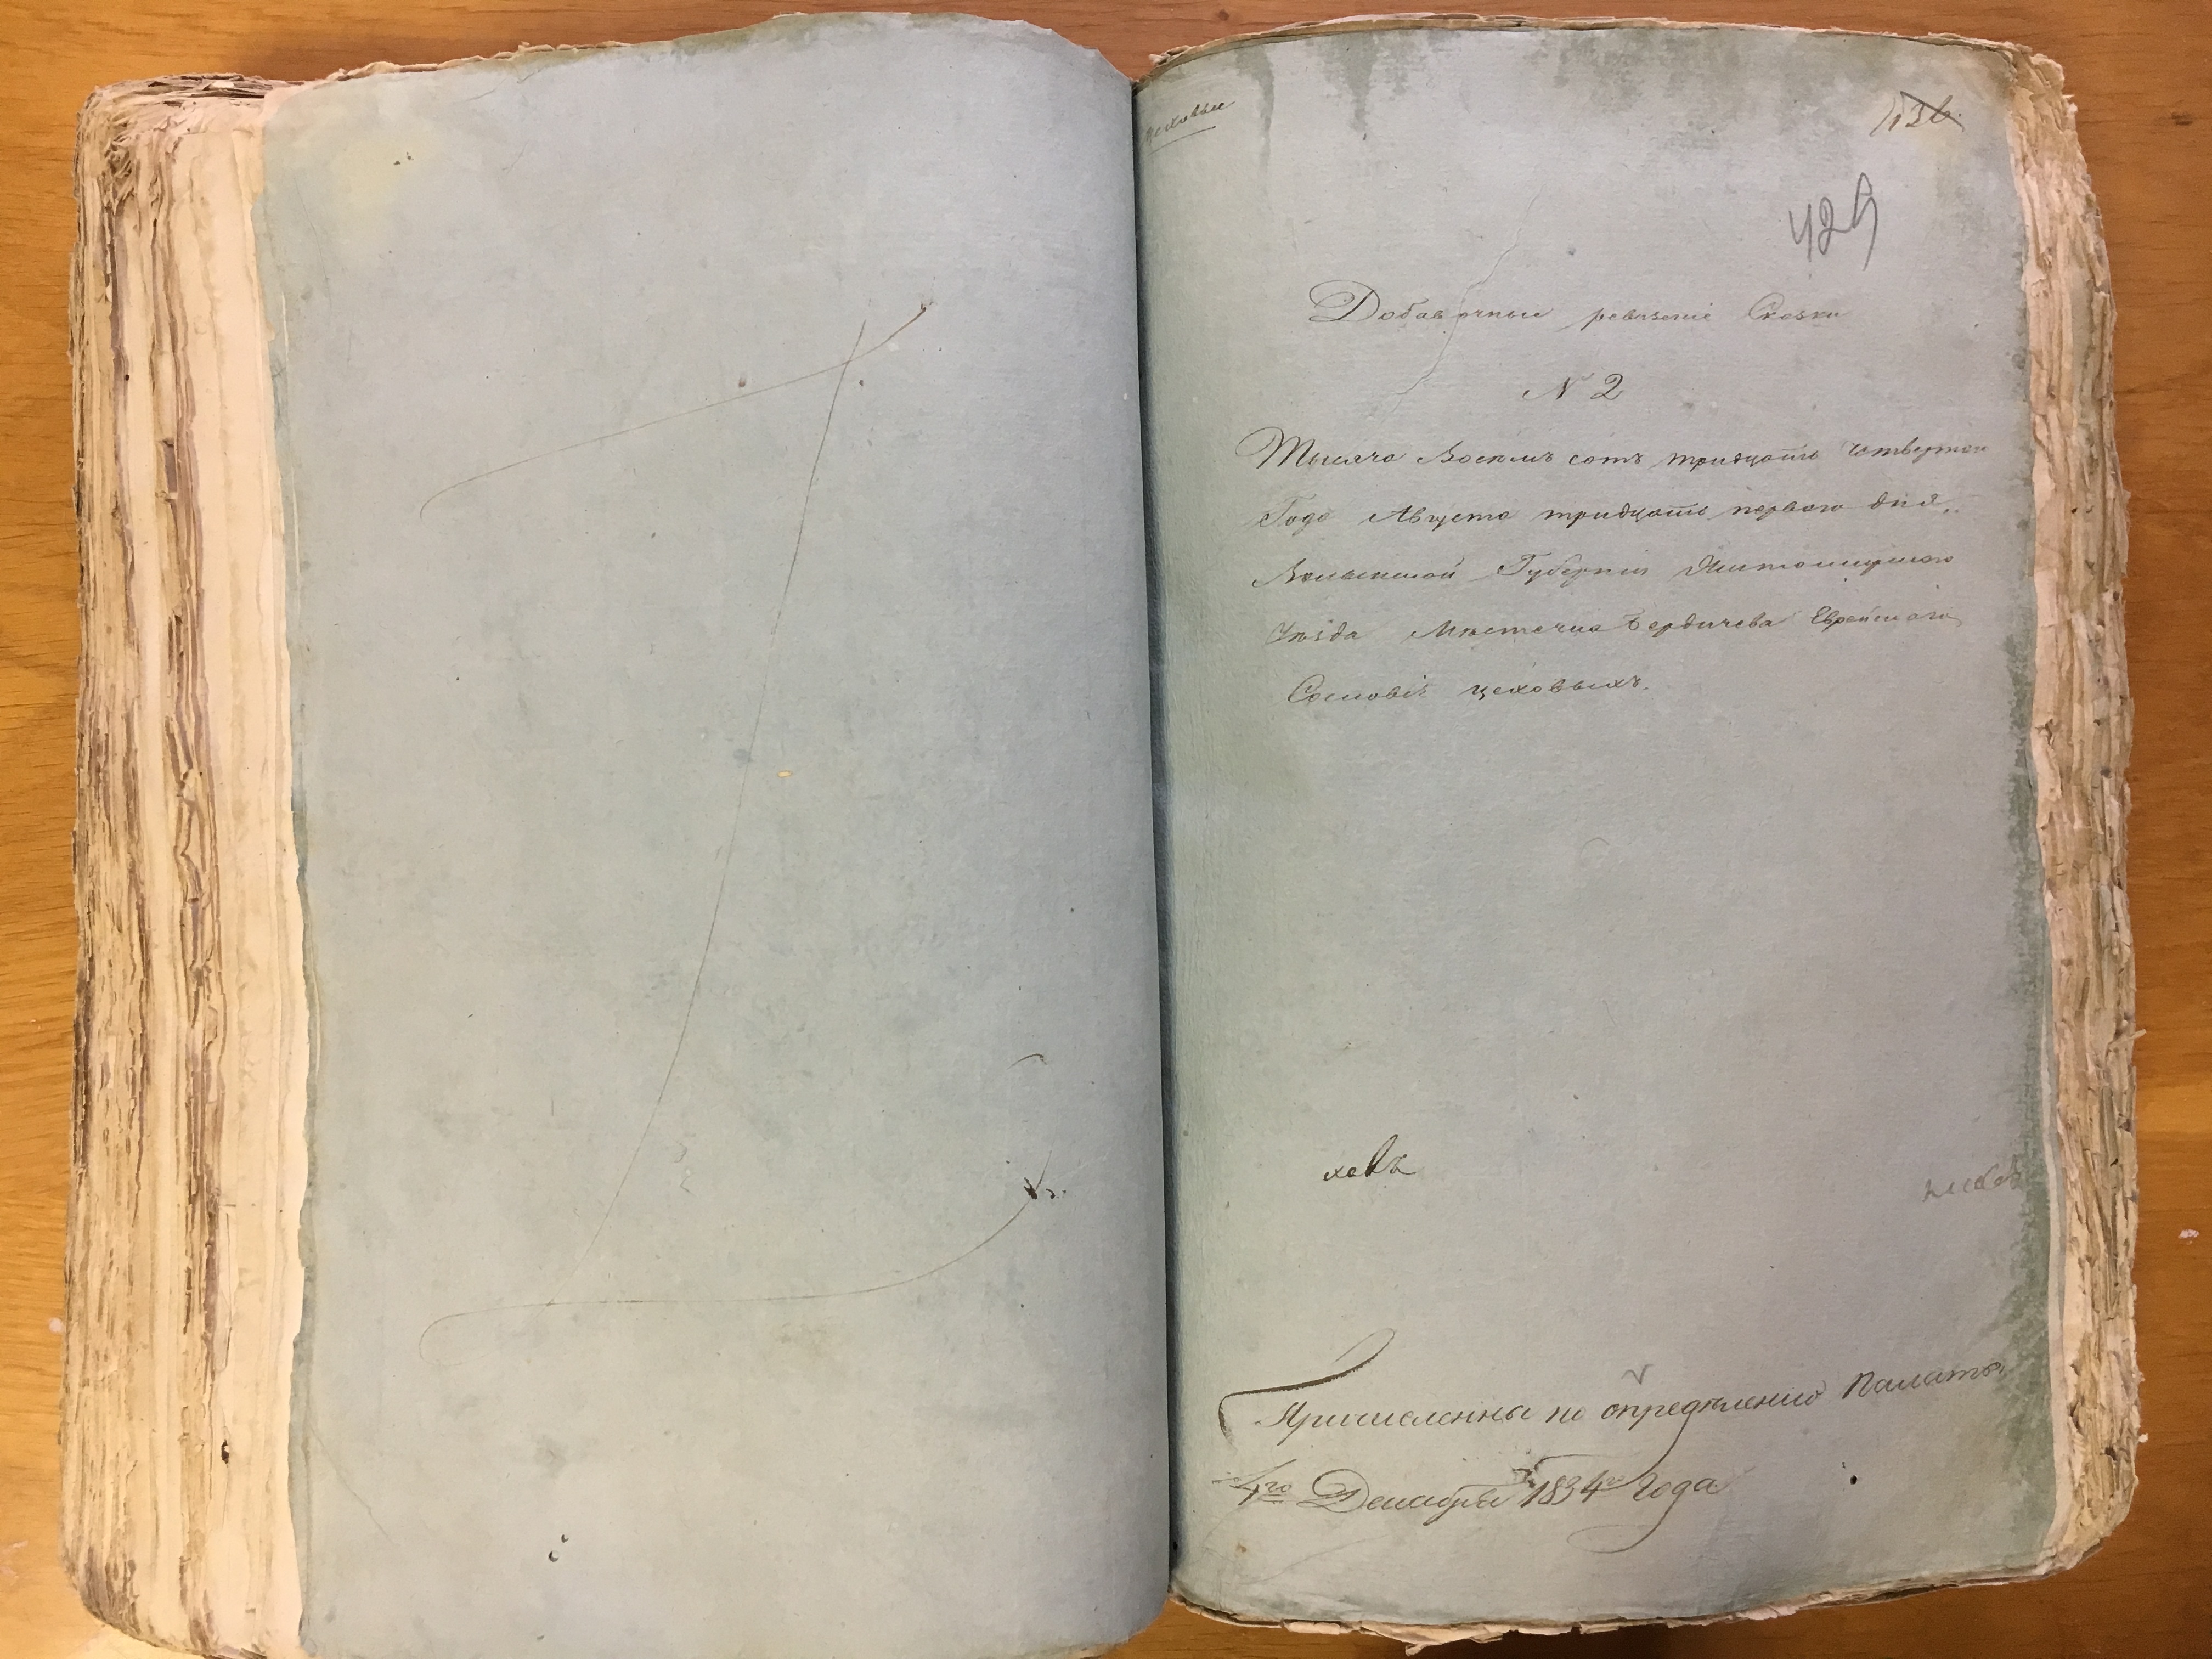 цеховые
1136
429
Добавочные ревизскіе Сказки
N 2
Тысяча Восемь сотъ тридцать четвертаго
Года Августа тридцать перваго дня,
Волынской Губерніи Житомирскаго
Уѣзда Мѣстечка Бердичева Еврейскаго
Сословія цеховыхъ.
ховъ
Причисленные по опредѣленію Палаты
4го Декабря 1834го Года